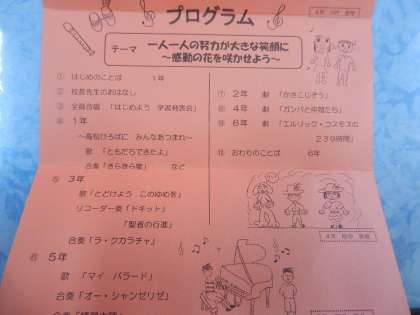 プログラム
テーマ
一人一人の努力が大きな笑顔に
～感動の花を咲かせよう～
① はじめのことば 1年
② 校長先生のおはなし
③ 全員合唱 「はじめよう 学習発表会」
④ 1年
～高松ひろばに みんなあつまれ～
歌 「ともだちできたよ」
合奏「きらきら星」 など
⑤ 3年
歌「とどけよう このゆめを」
リコーダー奏「ドキット」
「聖者の行進」
合奏「ラ・クカラチャ」
⑥ 5年
歌 「マイ バラード」
合奏「オー・シャンゼリゼ」
2年 劇 「かさこじぞう」
4年 劇 「ガンバと仲間たち」
6年 「エルリック・コスモスの
239時間」
おわりのことば 6年